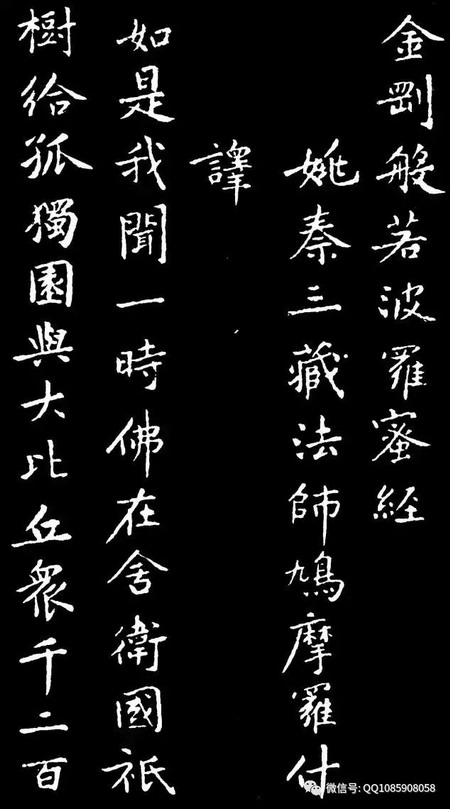 金剛般若波羅蜜経
姚秦三藏法師鳩摩羅什
譯
如是我聞一時佛在舍衛國祇
樹給孤獨園與大比丘衆千二百
微信号: QQ1085908058